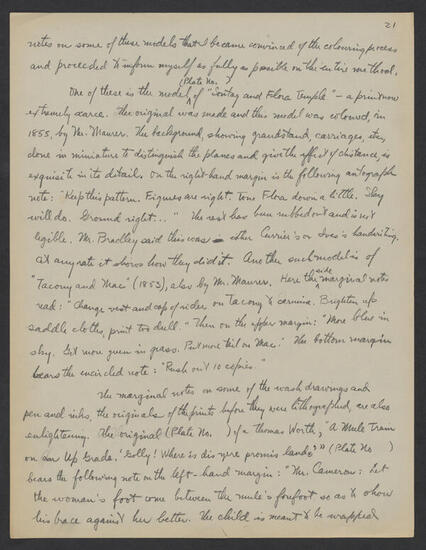 21
notes on some of these models that I became convinced of the colouring process
and proceeded to inform myself as fully as possible on the entire method.
(Plate No.       )
One of these is the model ^ of "Lantag and Flora Temple" – a print now
extremely scarce. The original was made and this model was coloured, in
1855, by Mr. Maurer. The background, showing grandstand, carriages, etc,
done in miniature to distinguish the planes and give the effect of distance, is
exquisite in its details. On the right-hand margin is the following autograph
note: "Keep this pattern. Figures are right. Tone Flora down a little. Sky
will do. Ground right..." The rest has been rubbed out and is not
legible. Mr. Bradley said this was either Currier's or Ives's handwriting.
At any rate it shows how they did it. Another such model is of
"Tacony and Mac" (1853), also by Mr. Maurer. Here the side marginal notes
read: "Change vest and cap of rider on Tacony to carmine. Brighten up
saddle cloths, print too dull." Then on the upper margin: "More blue in
sky. Get more green in grass. Put more tail on Mac." The bottom margin
bears the encircled note: "Rush out 10 copies."
The marginal notes on some of the wash drawings and
pen and inks, the originals of the prints before they were lithographed, are also
enlightening. The original (Plate No.       ) of a Thomas Worth, "A Mule Train
on an Up Grade. 'Golly! Where is dis yere promis lande?'" (Plate No       )
bears the following note on the left-hand margin: "Mr. Cameron: Let
the woman's foot come between the mule's forefoot so as to show
his brace against her better. The child is meant to be wrapped